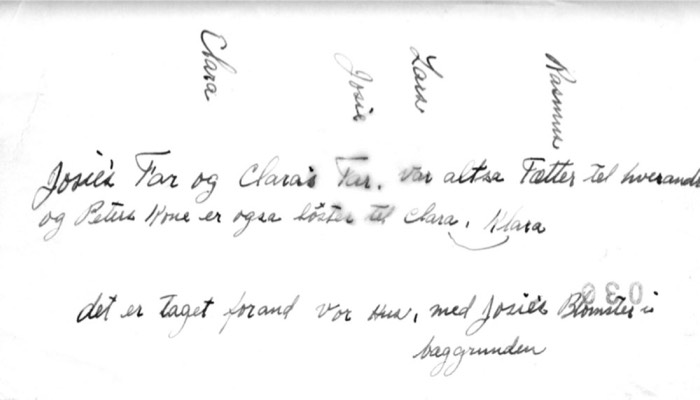 Clara Josie Lars Rasmus
Josie's Far og Clara's Far. var altsaa Fætter til hverandre
og Peters Kone er ogsaa søster til Clara. Klara
det er taget forand vor Hus, med Josie's Blomster i
baggrunden